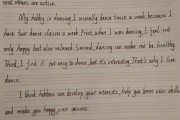 and makes me active.
My hobby is dancing. I usually dance twice a week, because I
have two dance classes a week. First, when I was dancing, I feel not
only happy but also relaxed. Second, dancing can make me be healthy.
Third, I find it not easy to dance, but it's interesting. That's why I love
dance.
I think hobbies can develop your interests, help you learn new skills
and make you happy